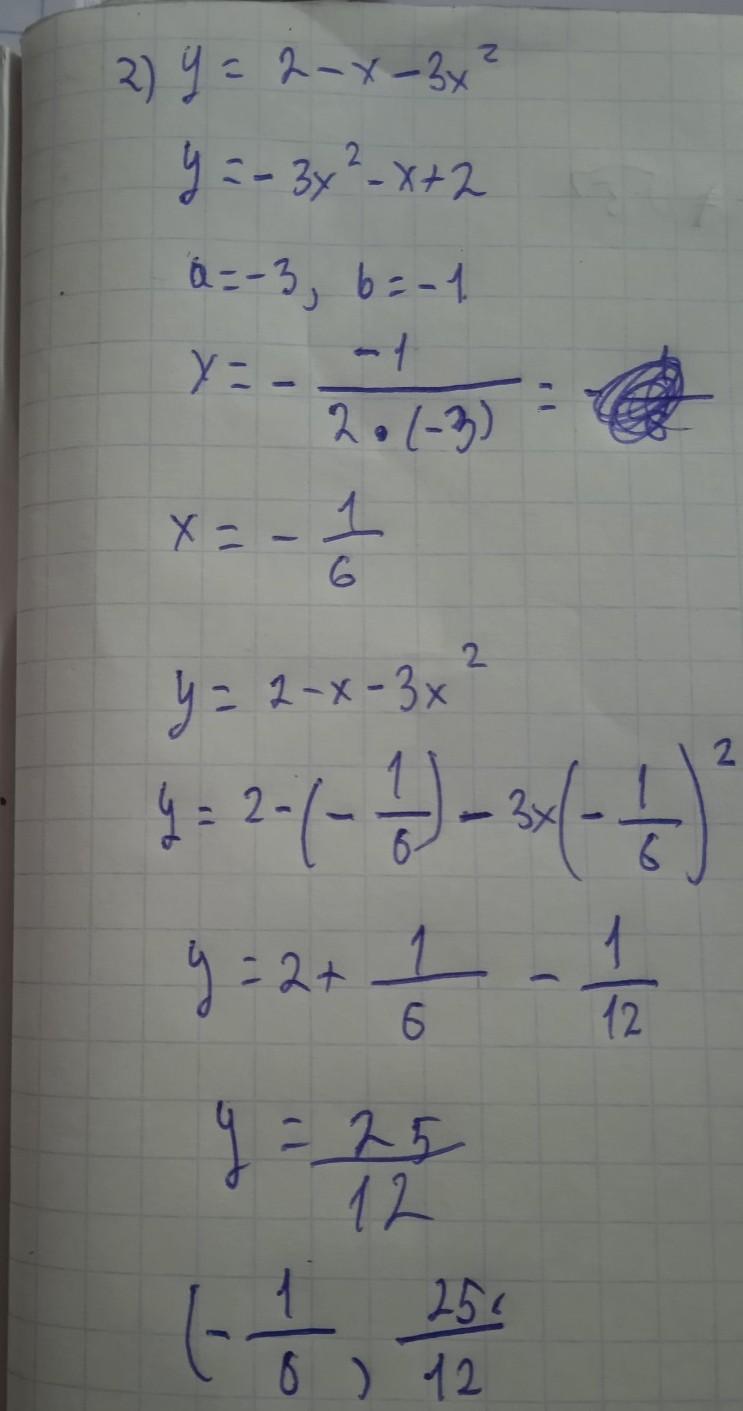 2) y = 2 - x - 3x²
y = - 3x² - x + 2
a = -3, b = -1
x = - \frac{-1}{2 • (-3)} =
x = - \frac{1}{6}
y = 2 - x - 3x²
y = 2 - (- \frac{1}{6}) - 3x(- \frac{1}{6})²
y = 2 + \frac{1}{6} - \frac{1}{12}
y = \frac{25}{12}
(- \frac{1}{6}, \frac{25}{12}